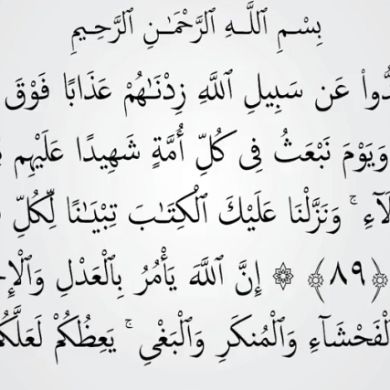 بِسْمِ ٱللَّـهِ ٱلرَّحْمَـٰنِ ٱلرَّحِيمِ
دُّوا۟ عَن سَبِيلِ ٱللَّهِ زِدْنَـٰهُمْ عَذَابًا فَوْقَ
وَيَوْمَ نَبْعَثُ فِى كُلِّ أُمَّةٍ شَهِيدًا عَلَيْهِم
لَآءِ ۚ وَنَزَّلْنَا عَلَيْكَ ٱلْكِتَـٰبَ تِبْيَـٰنًا لِّكُلِّ
﴿٨٩﴾ ۞ إِنَّ ٱللَّهَ يَأْمُرُ بِٱلْعَدْلِ وَٱلْإِ
لْفَحْشَآءِ وَٱلْمُنكَرِ وَٱلْبَغْىِ ۚ يَعِظُكُمْ لَعَلَّكُ